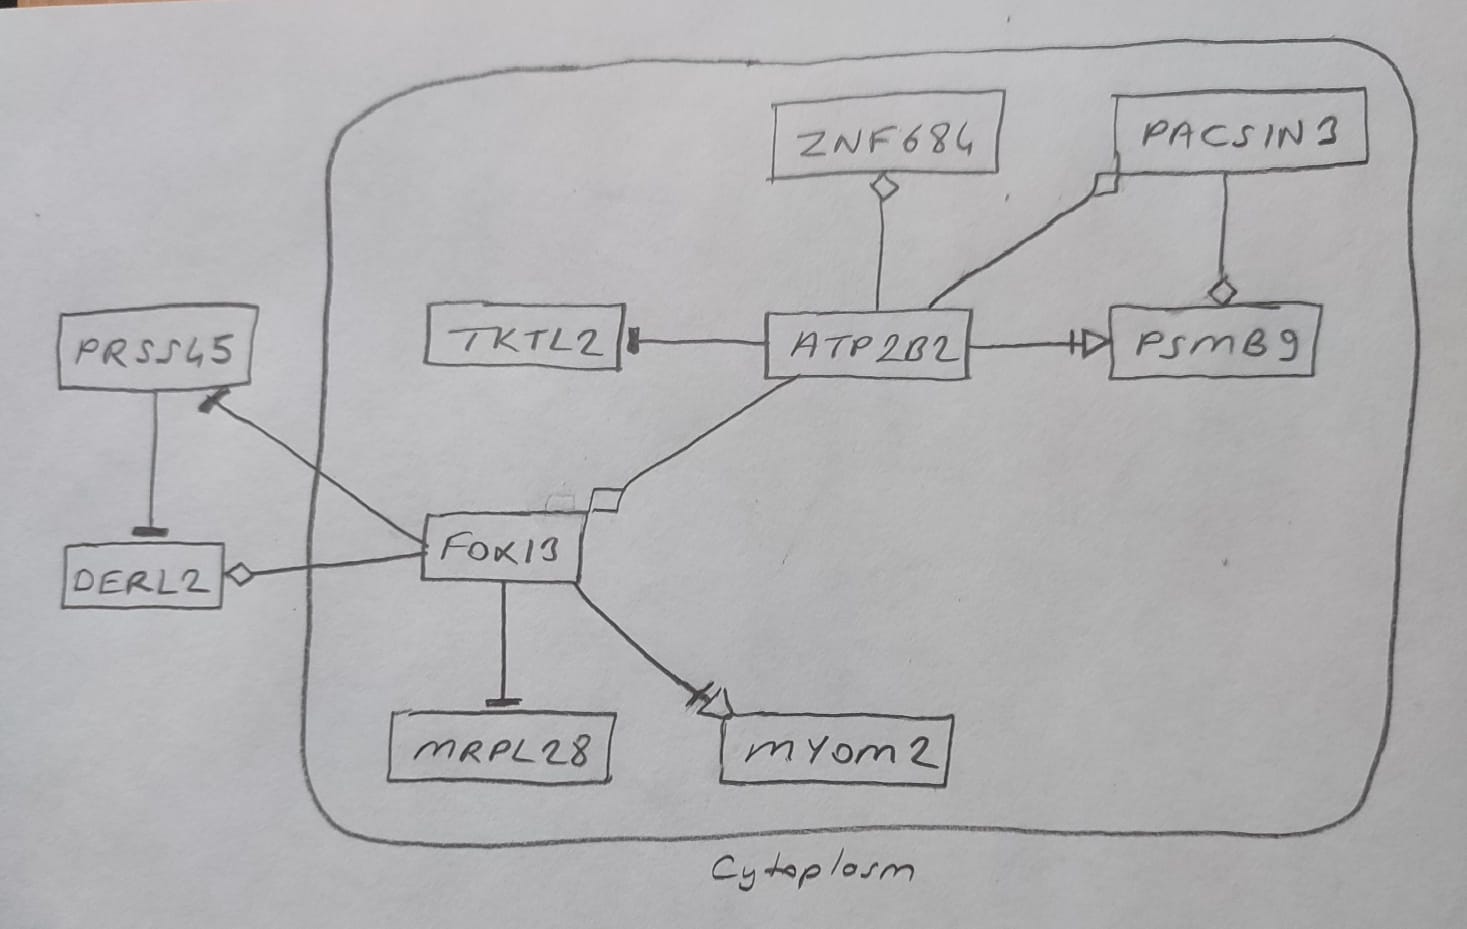 ZNF684
PACSIN3
PRSS45
TKTL2
ATP2B2
PSMB9
DERL2
FOXI3
MRPL28
MYOM2
Cytoplasm